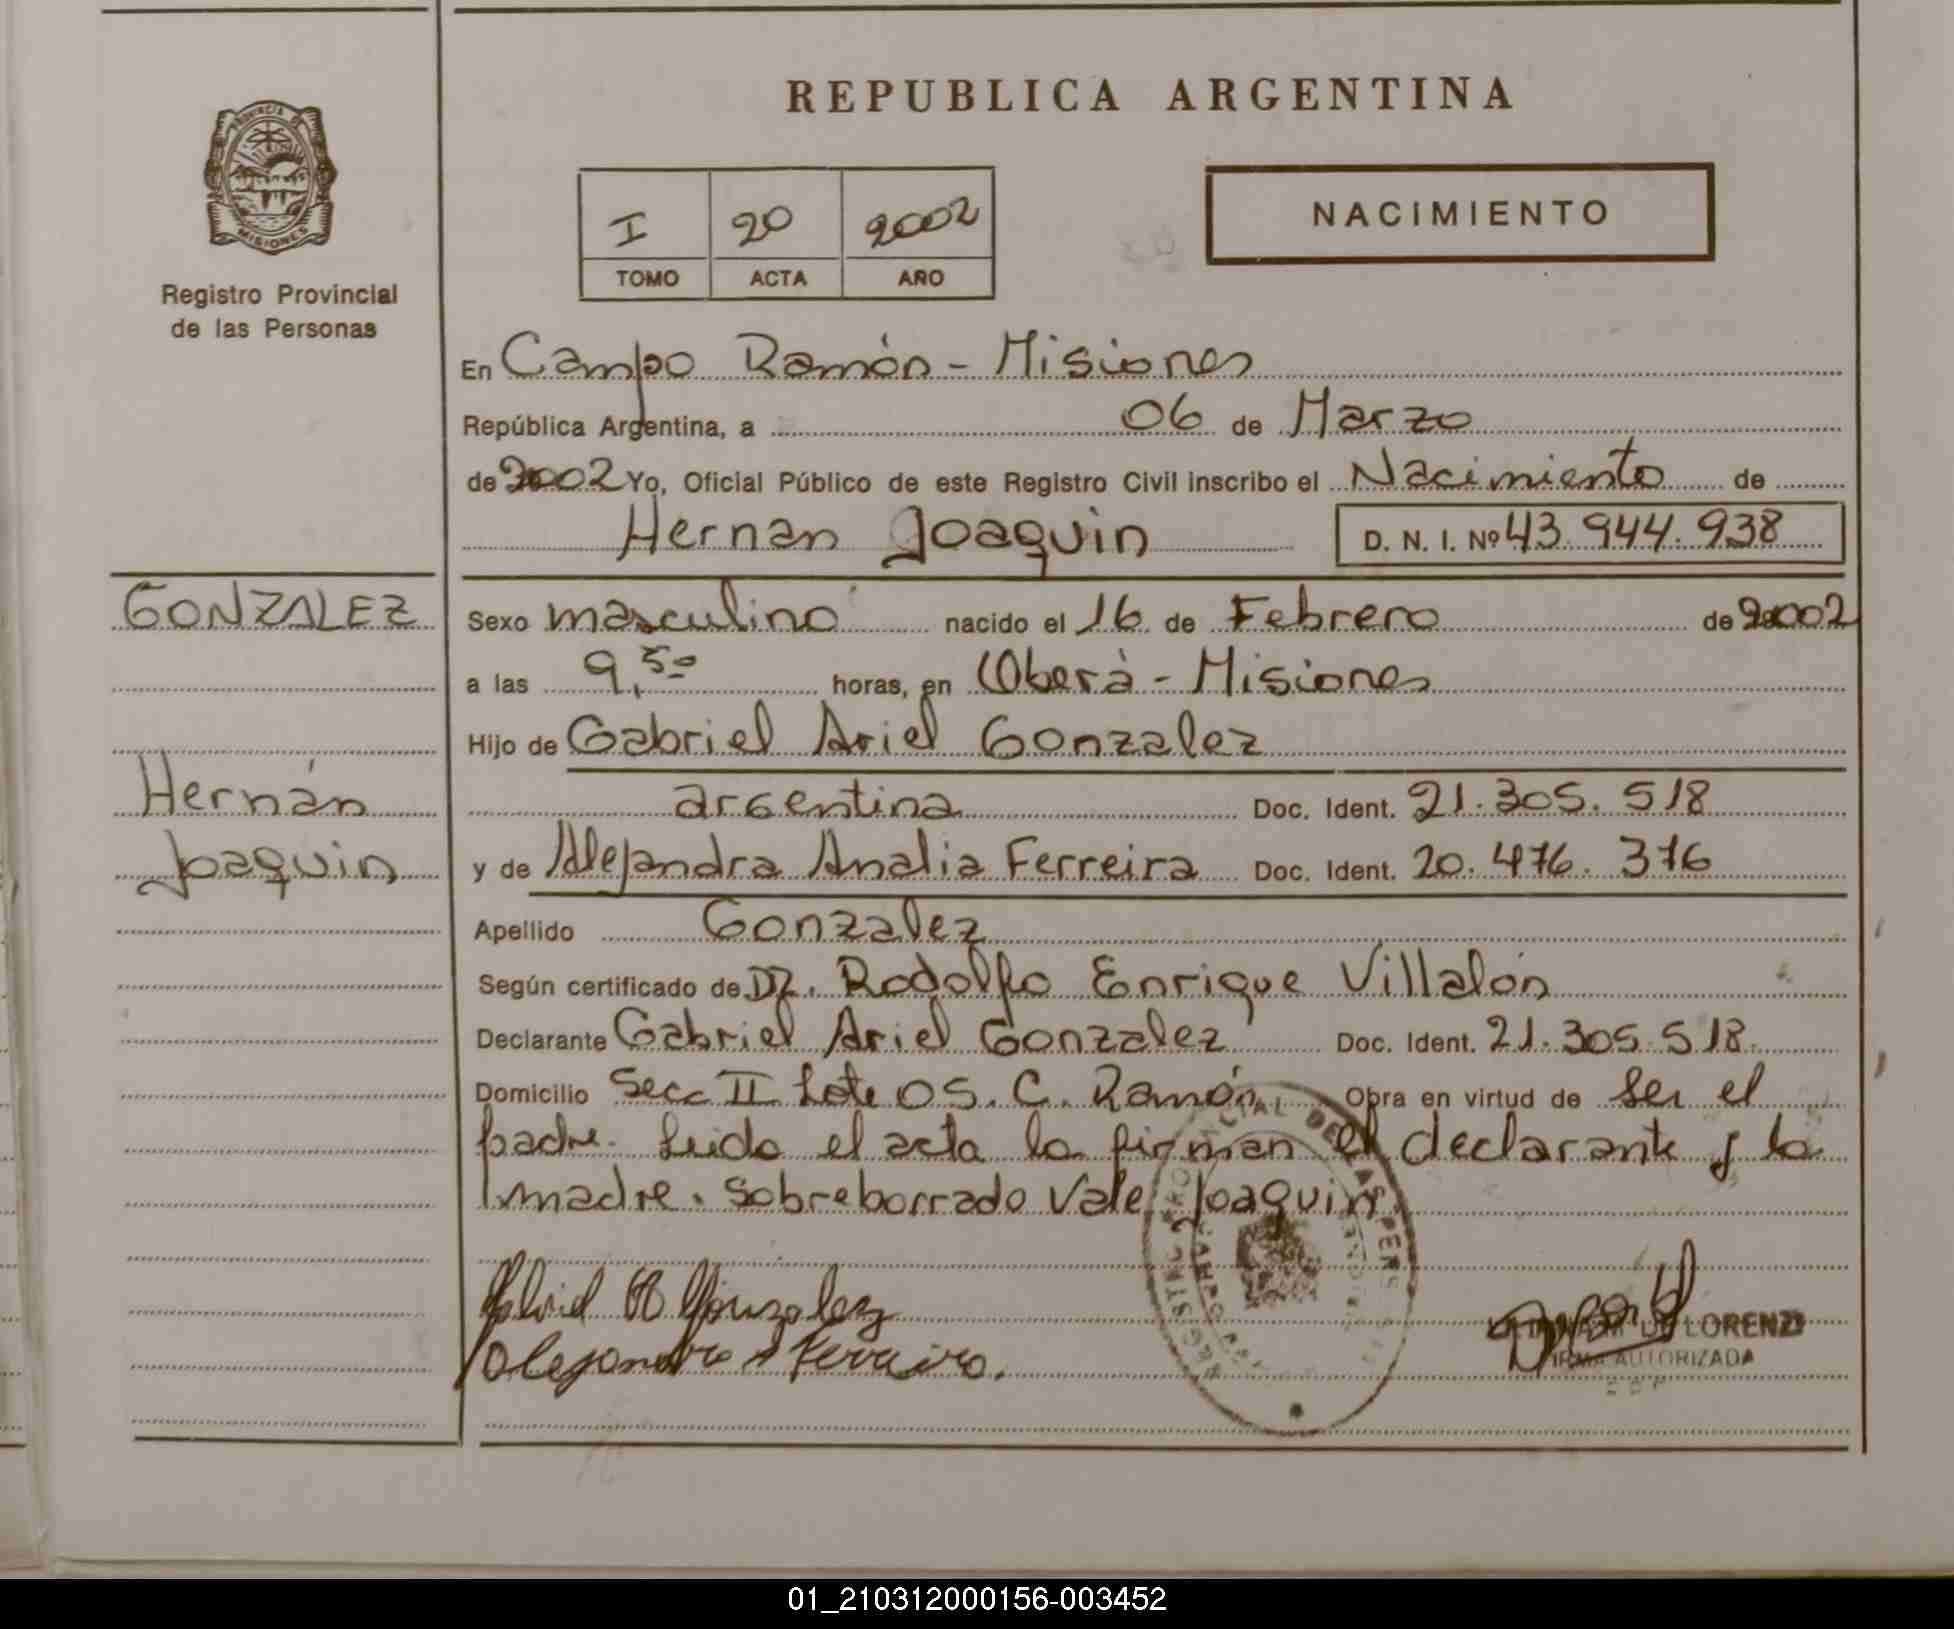 REPUBLICA ARGENTINA
PROVINCIA DE
MISIONES
Registro Provincial
de las Personas
I 20 2002
TOMO ACTA AÑO
NACIMIENTO
En Campo Ramón - Misiones
República Argentina, a 06 de Marzo
de 2002 Yo, Oficial Público de este Registro Civil inscribo el Nacimiento de
Hernan Joaquin D. N. I. Nº 43.944.938
GONZALEZ
Hernán
Joaquin
Sexo masculino nacido el 16 de Febrero de 2002
a las 9,50 horas, en Oberá - Misiones
Hijo de Gabriel Ariel Gonzalez
argentina Doc. Ident. 21.305.518
y de Alejandra Analia Ferreira Doc. Ident. 20.476.376
Apellido Gonzalez
Según certificado de DR. Rodolfo Enrique Villalón
Declarante Gabriel Ariel Gonzalez Doc. Ident. 21.305.518.
Domicilio Secc II Lote 05. C. Ramón Obra en virtud de ser el
padre. Leida el acta la firman el declarante y la
madre. Sobreborrado Vale Joaquin
Gabriel A Gonzalez
Alejandra A Ferreira.
REGISTRO PROVINCIAL DE LAS PERS
CAMPO
LORENZI
FIRMA AUTORIZADA
01_210312000156-003452